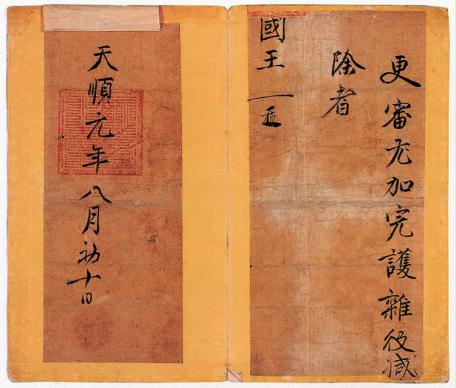 更審尤加完護雜役减
除者
國王
天順元年八月初十日